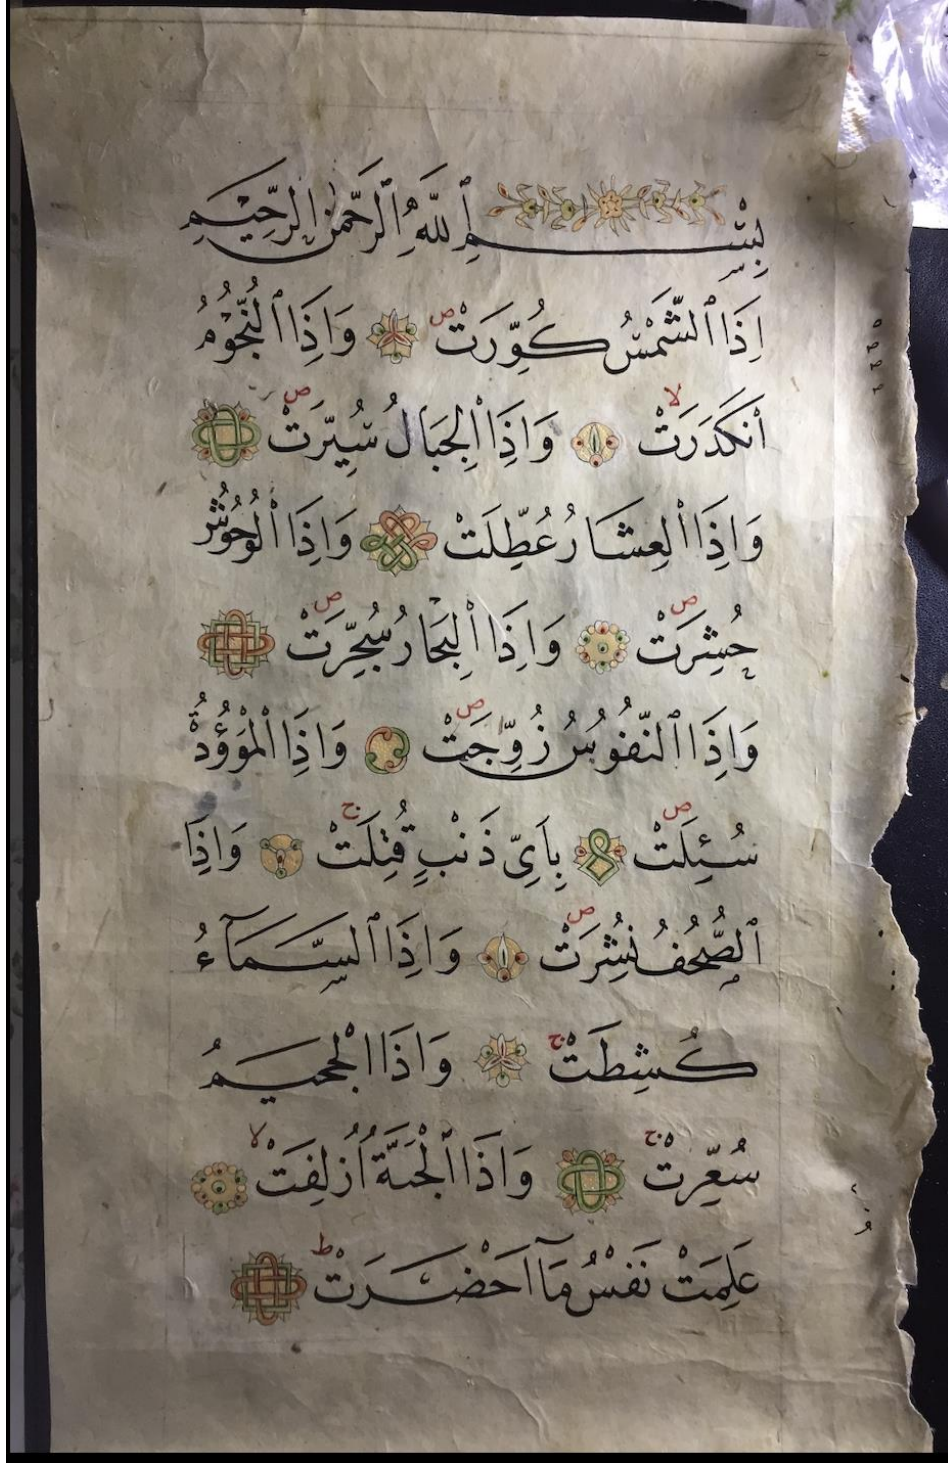 بِسْمِ ٱللَّهِ ٱلرَّحْمٰنِ ٱلرَّحِيمِ
اِذَا ٱلشَّمْسُ كُوِّرَتْ ص وَاِذَا ٱلنُّجُومُ
ٱنْكَدَرَتْ لا وَاِذَا ٱلْجِبَالُ سُيِّرَتْ ص
وَاِذَا ٱلْعِشَارُ عُطِّلَتْ وَاِذَا ٱلْوُحُوشُ
حُشِرَتْ ص وَاِذَا ٱلْبِحَارُ سُجِّرَتْ ص
وَاِذَا ٱلنُّفُوسُ زُوِّجَتْ ص وَاِذَا ٱلْمَوْؤُدَةُ
سُئِلَتْ ص بِاَىِّ ذَنْبٍ قُتِلَتْ ج وَاِذَا
ٱلصُّحُفُ نُشِرَتْ ص وَاِذَا ٱلسَّمَآءُ
كُشِطَتْ ج وَاِذَا ٱلْجَحِيمُ
سُعِّرَتْ ج وَاِذَا ٱلْجَنَّةُ اُزْلِفَتْ لا
عَلِمَتْ نَفْسٌ مَآ اَحْضَرَتْ ط